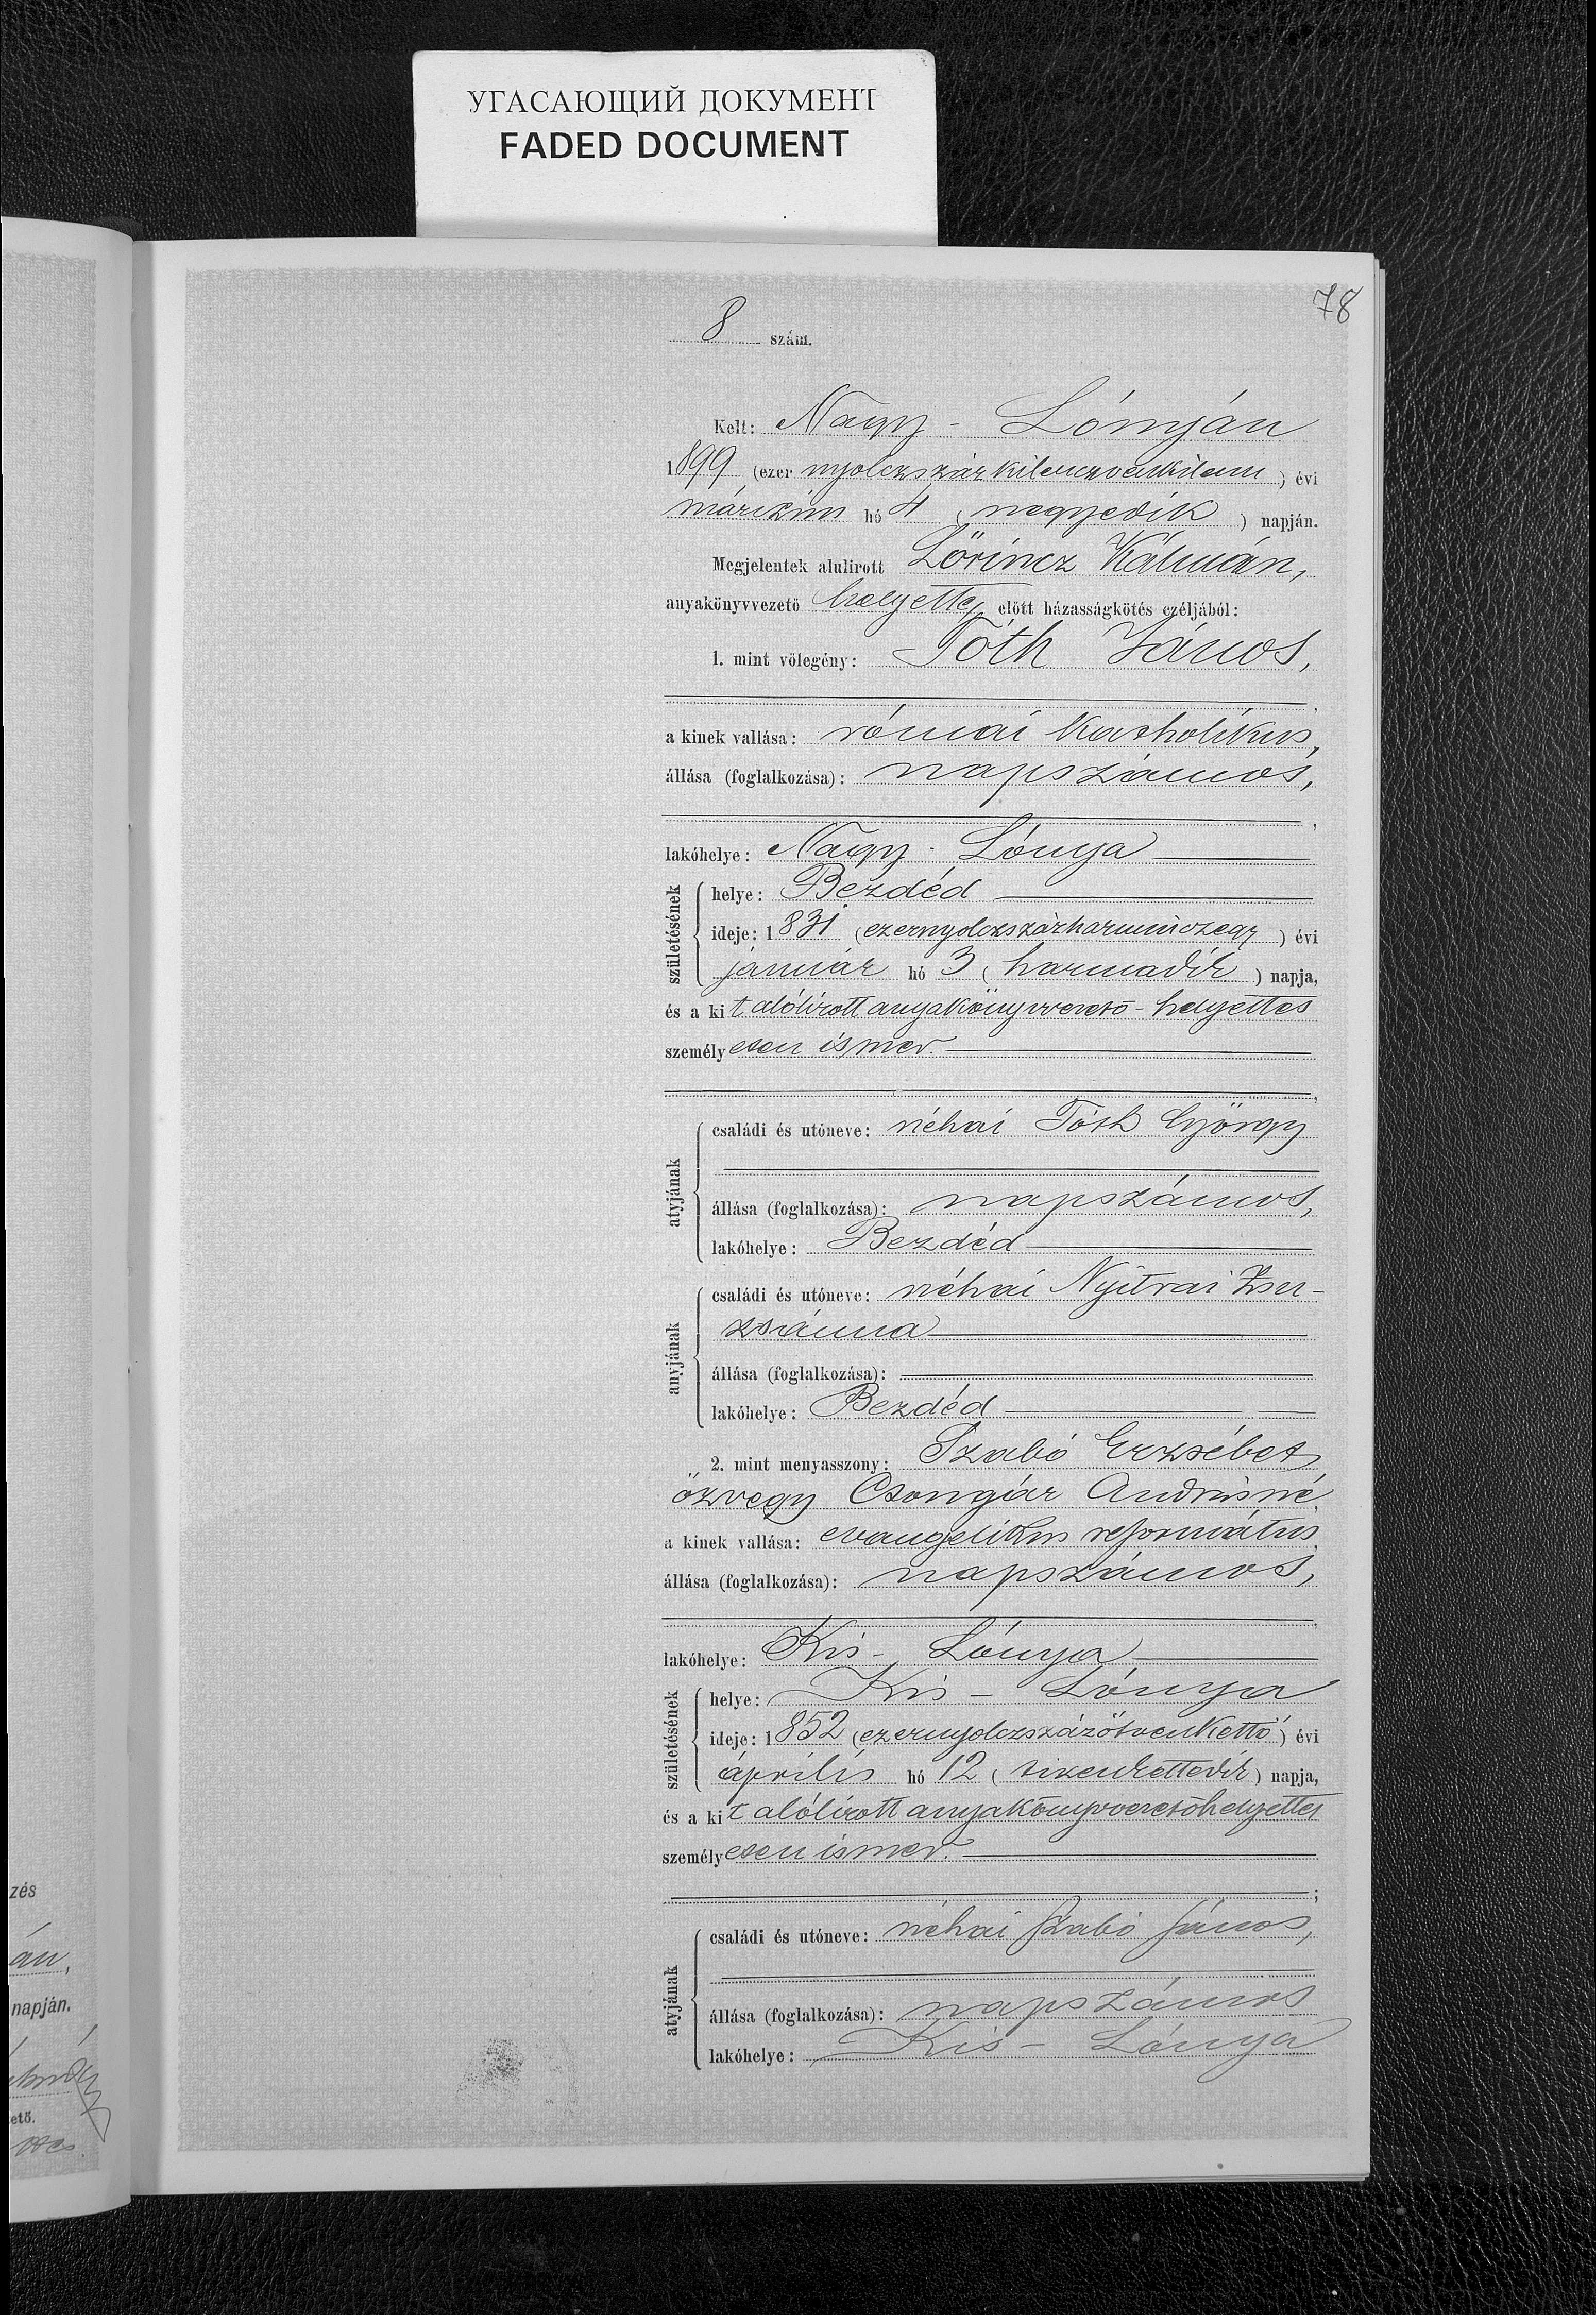 УГАСАЮЩИЙ ДОКУМЕНТ
FADED DOCUMENT
78
8 szám.
Kelt: Nagy - Lónyán
1899 (ezer nyolczszázkilenczvenkilencz) évi
márczius hó 4 (negyedik) napján.
Megjelentek alulirott Lőrincz Kálmán,
anyakönyvvezető helyettes előtt házasságkötés czéljából:
1. mint völegény: Tóth János,
a kinek vallása: római katholikus,
állása (foglalkozása): napszámos,
lakóhelye: Nagy - Lónya
születésének
helye: Bezdéd
ideje: 1831 (ezernyolczszázharminczegy) évi
január hó 3 (harmadik) napja,
és a kit alólirott anyakönyvvezető-helyettes
személyesen ismer.
atyjának
családi és utóneve: néhai Tóth György
állása (foglalkozása): napszámos,
lakóhelye: Bezdéd
anyjának
családi és utóneve: néhai Nyitrai Zsu-
zsánna
állása (foglalkozása):
lakóhelye: Bezdéd
2. mint menyasszony: Szabó Erzsébet
özvegy Csongár Andrásné,
a kinek vallása: evangelikus református,
állása (foglalkozása): napszámos,
lakóhelye: Kis - Lónya
születésének
helye: Kis - Lónya
ideje: 1852 (ezernyolczszázötvenkettő) évi
április hó 12 (tizenkettedik) napja,
és a kit alólirott anyakönyvvezetőhelyettes
személyesen ismer.
;
atyjának
családi és utóneve: néhai Szabó János,
állása (foglalkozása): napszámos
lakóhelye: Kis - Lónya
zés
án,
napján.
ető.